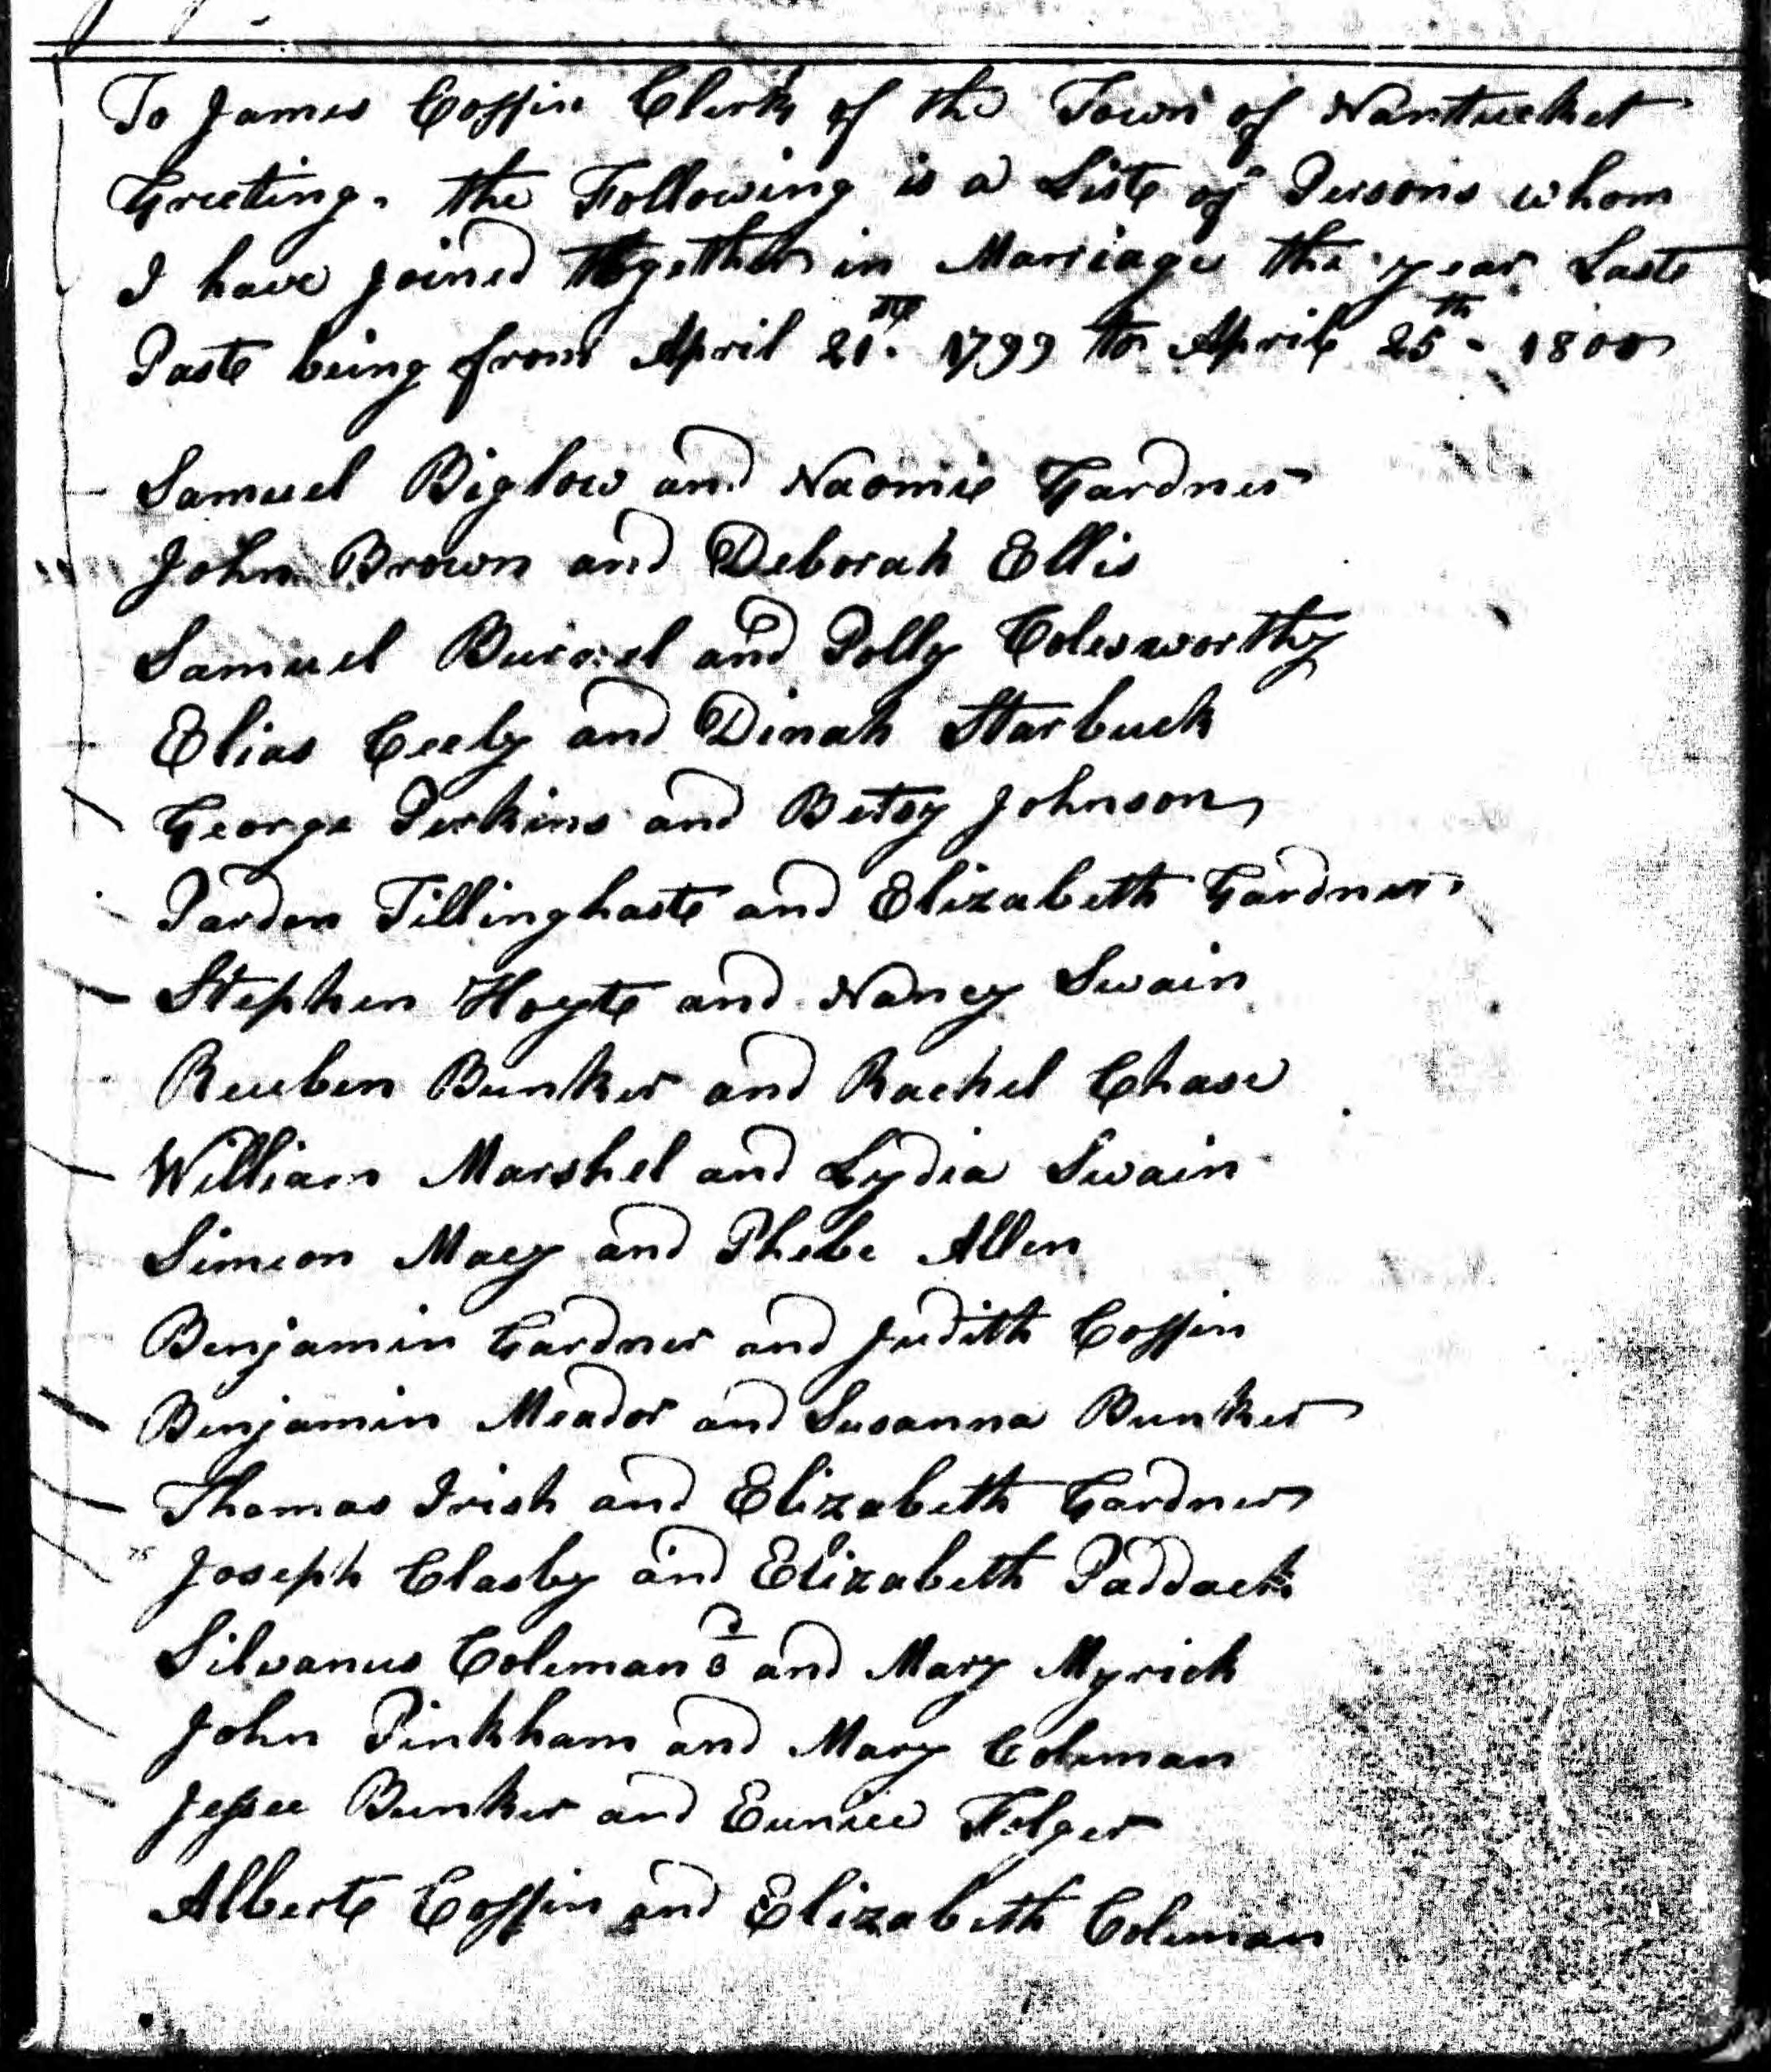 To James Coffin Clerk of the Town of Nantucket
Greeting. the Following is a Liste of Persons whom
I have Joined together in Marriage the year Laste
Paste being from April 21. 1799 to April 25th 1800
Samuel Biglow and Naomie Gardner
John Brown and Deborah Ellis
Samuel and Polly Colesworthy
Elias Ceely and Dinah Starbuck
George Perkins and Betsy Johnson
Parden Tillinghaste and Elizabeth Gardner
Stephen Hoyte and Nancy Swain
Reuben Bunker and Rachel Chase
William Marshel and Lydia Swain
Simeon Macy and Phebe Allen
Benjamin Gardner and Judith Coffin
Benjamin Meador and Susanna Bunker
Thomas Irish and Elizabeth Gardner
Joseph Clasby and Elizabeth Paddack
Silvanus Coleman and Mary Myrick
John Pinkham and Mary Coleman
Jessee Bunker and Eunice Folger
Alberte Coffin and Elizabeth Coleman